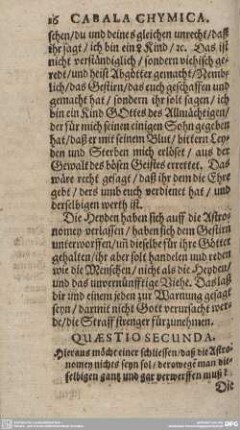 16 CABALA CHYMICA.
schen/du und deines gleichen unrecht/daß
ihr sagt / ich bin ein Kind / ꝛc. Das ist
nicht verständiglich / sondern viehisch ge-
redt/und heist Abgötter gemacht/Nemb-
lich/das Gestirn/das euch geschaffen und
gemacht hat / sondern ihr solt sagen / ich
bin ein Kind GOttes des Allmächtigen/
der für mich seinen einigen Sohn gegeben
hat/daß er mit seinem Blut/bittern Ley-
den und Sterben mich erlöset / aus der
Gewalt des bösen Geistes errettet. Das
wäre recht gesagt / daß ihr dem die Ehre
gebt / ders umb euch verdienet hat / und
derselbigen werth ist.
Die Heyden haben sich auff die Astro-
nomey verlassen / haben sich dem Gestirn
unterworffen/uñ dieselbe für ihre Götter
gehalten/ihr aber solt handeln und reden
wie die Menschen/nicht als die Heyden/
und das unvernünfftige Viehe. Das laß
dir und einem jeden zur Warnung gesagt
seyn / darmit nicht Gott verursacht wer-
de/die Straff strenger fürzunehmen.
QUÆSTIO SECUNDA.
Hieraus möcht einer schliessen/daß die Astro-
nomey nichts seyn sol / derowege man die-
selbigen gantz und gar verwerffen muß?
Die